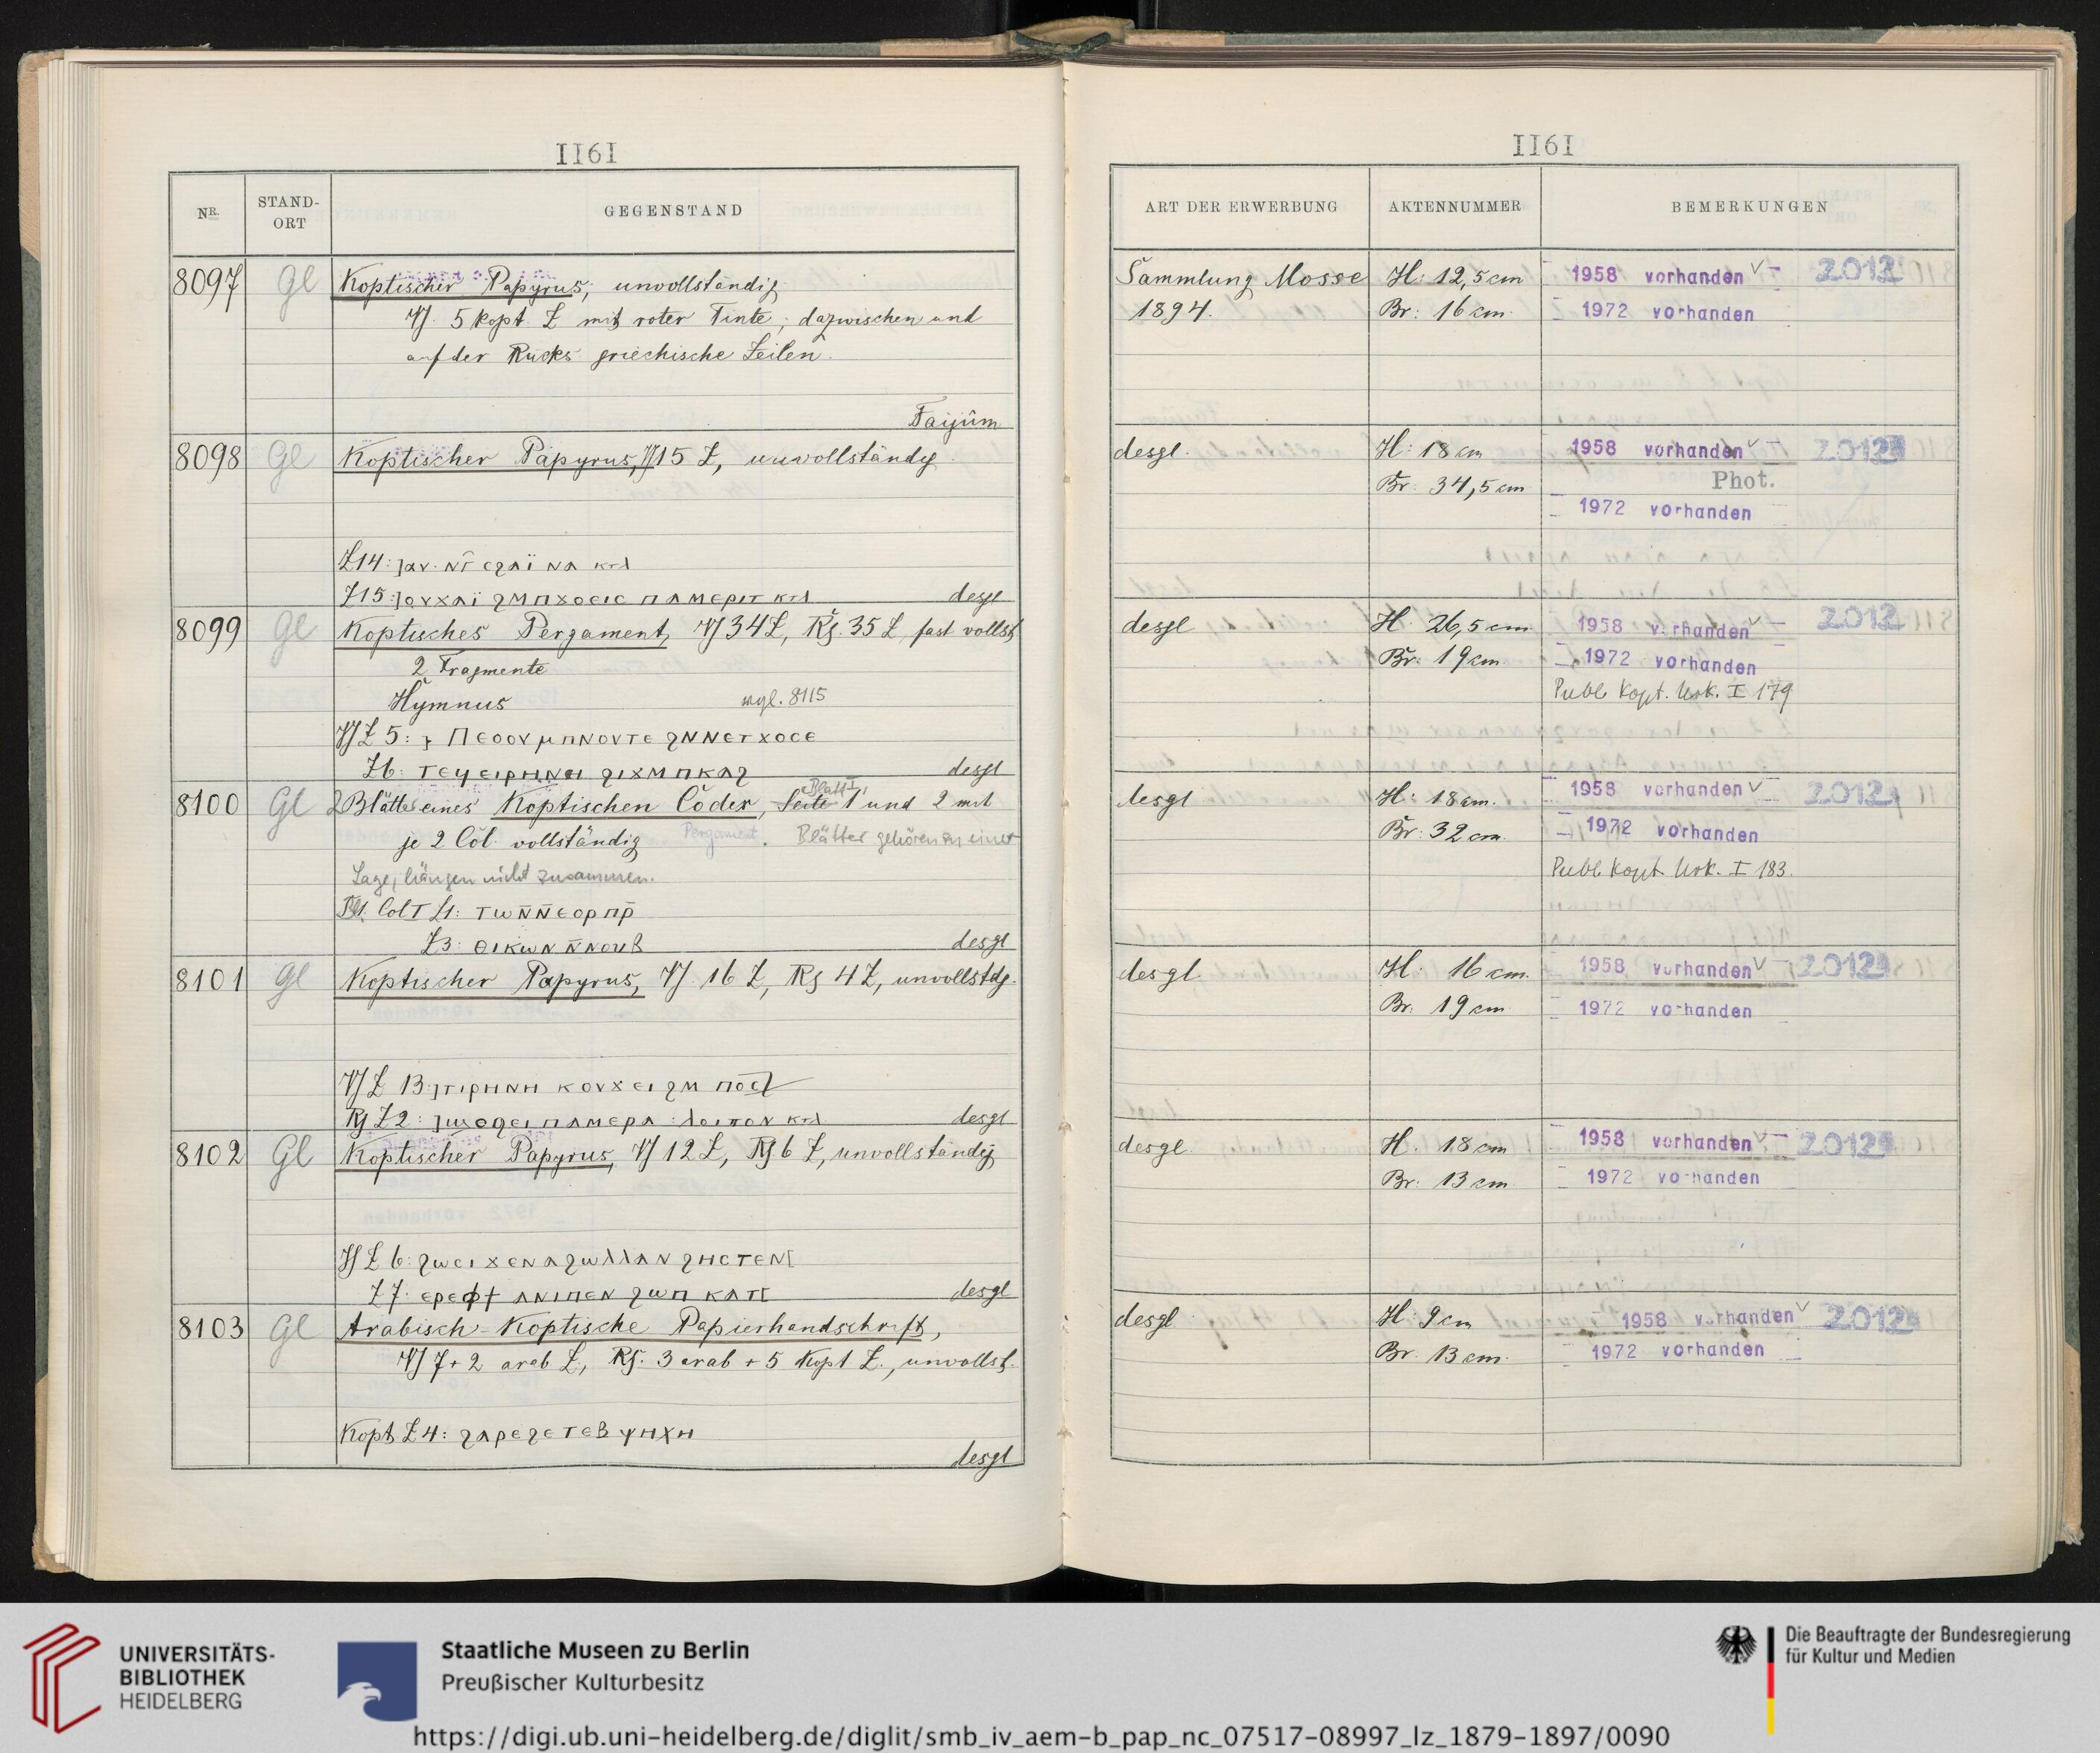 1161
NR.
STAND-
ORT
GEGENSTAND
8097 Gl Koptischer Papyrus, unvollständig
Vs. 5 kopt. Z mit roter Tinte; dazwischen und
auf der Rücks griechische Zeilen.
Faijûm
8098 Gl Koptischer Papyrus, Vs 15 Z, unvollständig
Z14:
Z15: ]ⲟⲩϫⲁⲓ̈ ϩⲙⲡϫⲟⲉⲓⲥ ⲡⲁⲙⲉⲣⲓⲧ κτλ desgl
8099 Gl Koptisches Pergament, Vs 34 Z, Rs. 35 Z, fast vollst
2 Fragmente
Hymnus vgl. 8115
Vs Z 5: ⲡⲉⲟⲟⲩ ⲙⲡⲛⲟⲩⲧⲉ ϩⲛⲛⲉⲧϫⲟⲥⲉ
Z6: ⲧⲉϥⲉⲓⲣⲏⲛⲏ ϩⲓϫⲙⲡⲕⲁϩ desgl
8100 Gl 2 Blätter eines Koptischen Codex, Seite Blatt 1 und 2 mit
je 2 Col. vollständig Pergament. Blätter gehören zu einer
Lage, hängen nicht zusammen.
Bl 1. Col I Z1: ⲧⲱⲛ̄ⲛ̄ⲉⲟⲣⲡⲣ̄
Z3: ⲑⲓⲕⲱⲛ ⲛ̄ⲛⲟⲩⲃ desgl
8101 Gl Koptischer Papyrus, Vs. 16 Z, Rs 4 Z, unvollstdg.
Vs Z 13: ]ⲧⲓⲣⲏⲛⲏ ⲕⲟⲩϫⲉⲓ ϩⲙ ⲡⲟ̄ⲥ̄[
Rs Z2: desgl
8102 Gl Koptischer Papyrus, Vs 12 Z, Rs 6 Z, unvollständig
Vs Z 6: ϩⲱⲥⲓϫⲉⲛⲁϩⲱⲗⲗⲁⲛ ϩⲏⲥⲧⲉⲛ[
Z7: ⲉⲣⲉⲫϯ ⲁⲛⲓⲡⲉⲛ ϩⲱⲡ ⲕⲁⲧ[ desgl
8103 Gl Arabisch-Koptische Papierhandschrift,
Vs 7+2 arab Z., Rs. 3 arab + 5 Kopt Z., unvollst.
Kopt Z 4: ϩⲁⲣⲉϩⲉⲧⲉⲃⲯⲏⲭⲏ
desgl
1161
ART DER ERWERBUNG
AKTENNUMMER
BEMERKUNGEN
Sammlung Mosse H: 12,5 cm 1958 vorhanden 2012
1894. Br: 16 cm. 1972 vorhanden
desgl. H: 18 cm 1958 vorhanden 2012
Br: 34,5 cm Phot.
1972 vorhanden
desgl H: 26,5 cm 1958 vorhanden 2012
Br: 19 cm 1972 vorhanden
Publ. Kopt. Urk. I 179
desgl H: 18 cm. 1958 vorhanden 2012
Br: 32 cm. 1972 vorhanden
Publ. Kopt. Urk. I 183.
desgl. H: 16 cm. 1958 vorhanden 2012
Br: 19 cm 1972 vorhanden
desgl. H: 18 cm 1958 vorhanden 2012
Br: 13 cm 1972 vorhanden
desgl H: 9 cm 1958 vorhanden 2012
Br. 13 cm. 1972 vorhanden
UNIVERSITÄTS-
BIBLIOTHEK
HEIDELBERG
Staatliche Museen zu Berlin
Preußischer Kulturbesitz
Die Beauftragte der Bundesregierung
für Kultur und Medien
https://digi.ub.uni-heidelberg.de/diglit/smb_iv_aem-b_pap_nc_07517-08997_lz_1879-1897/0090